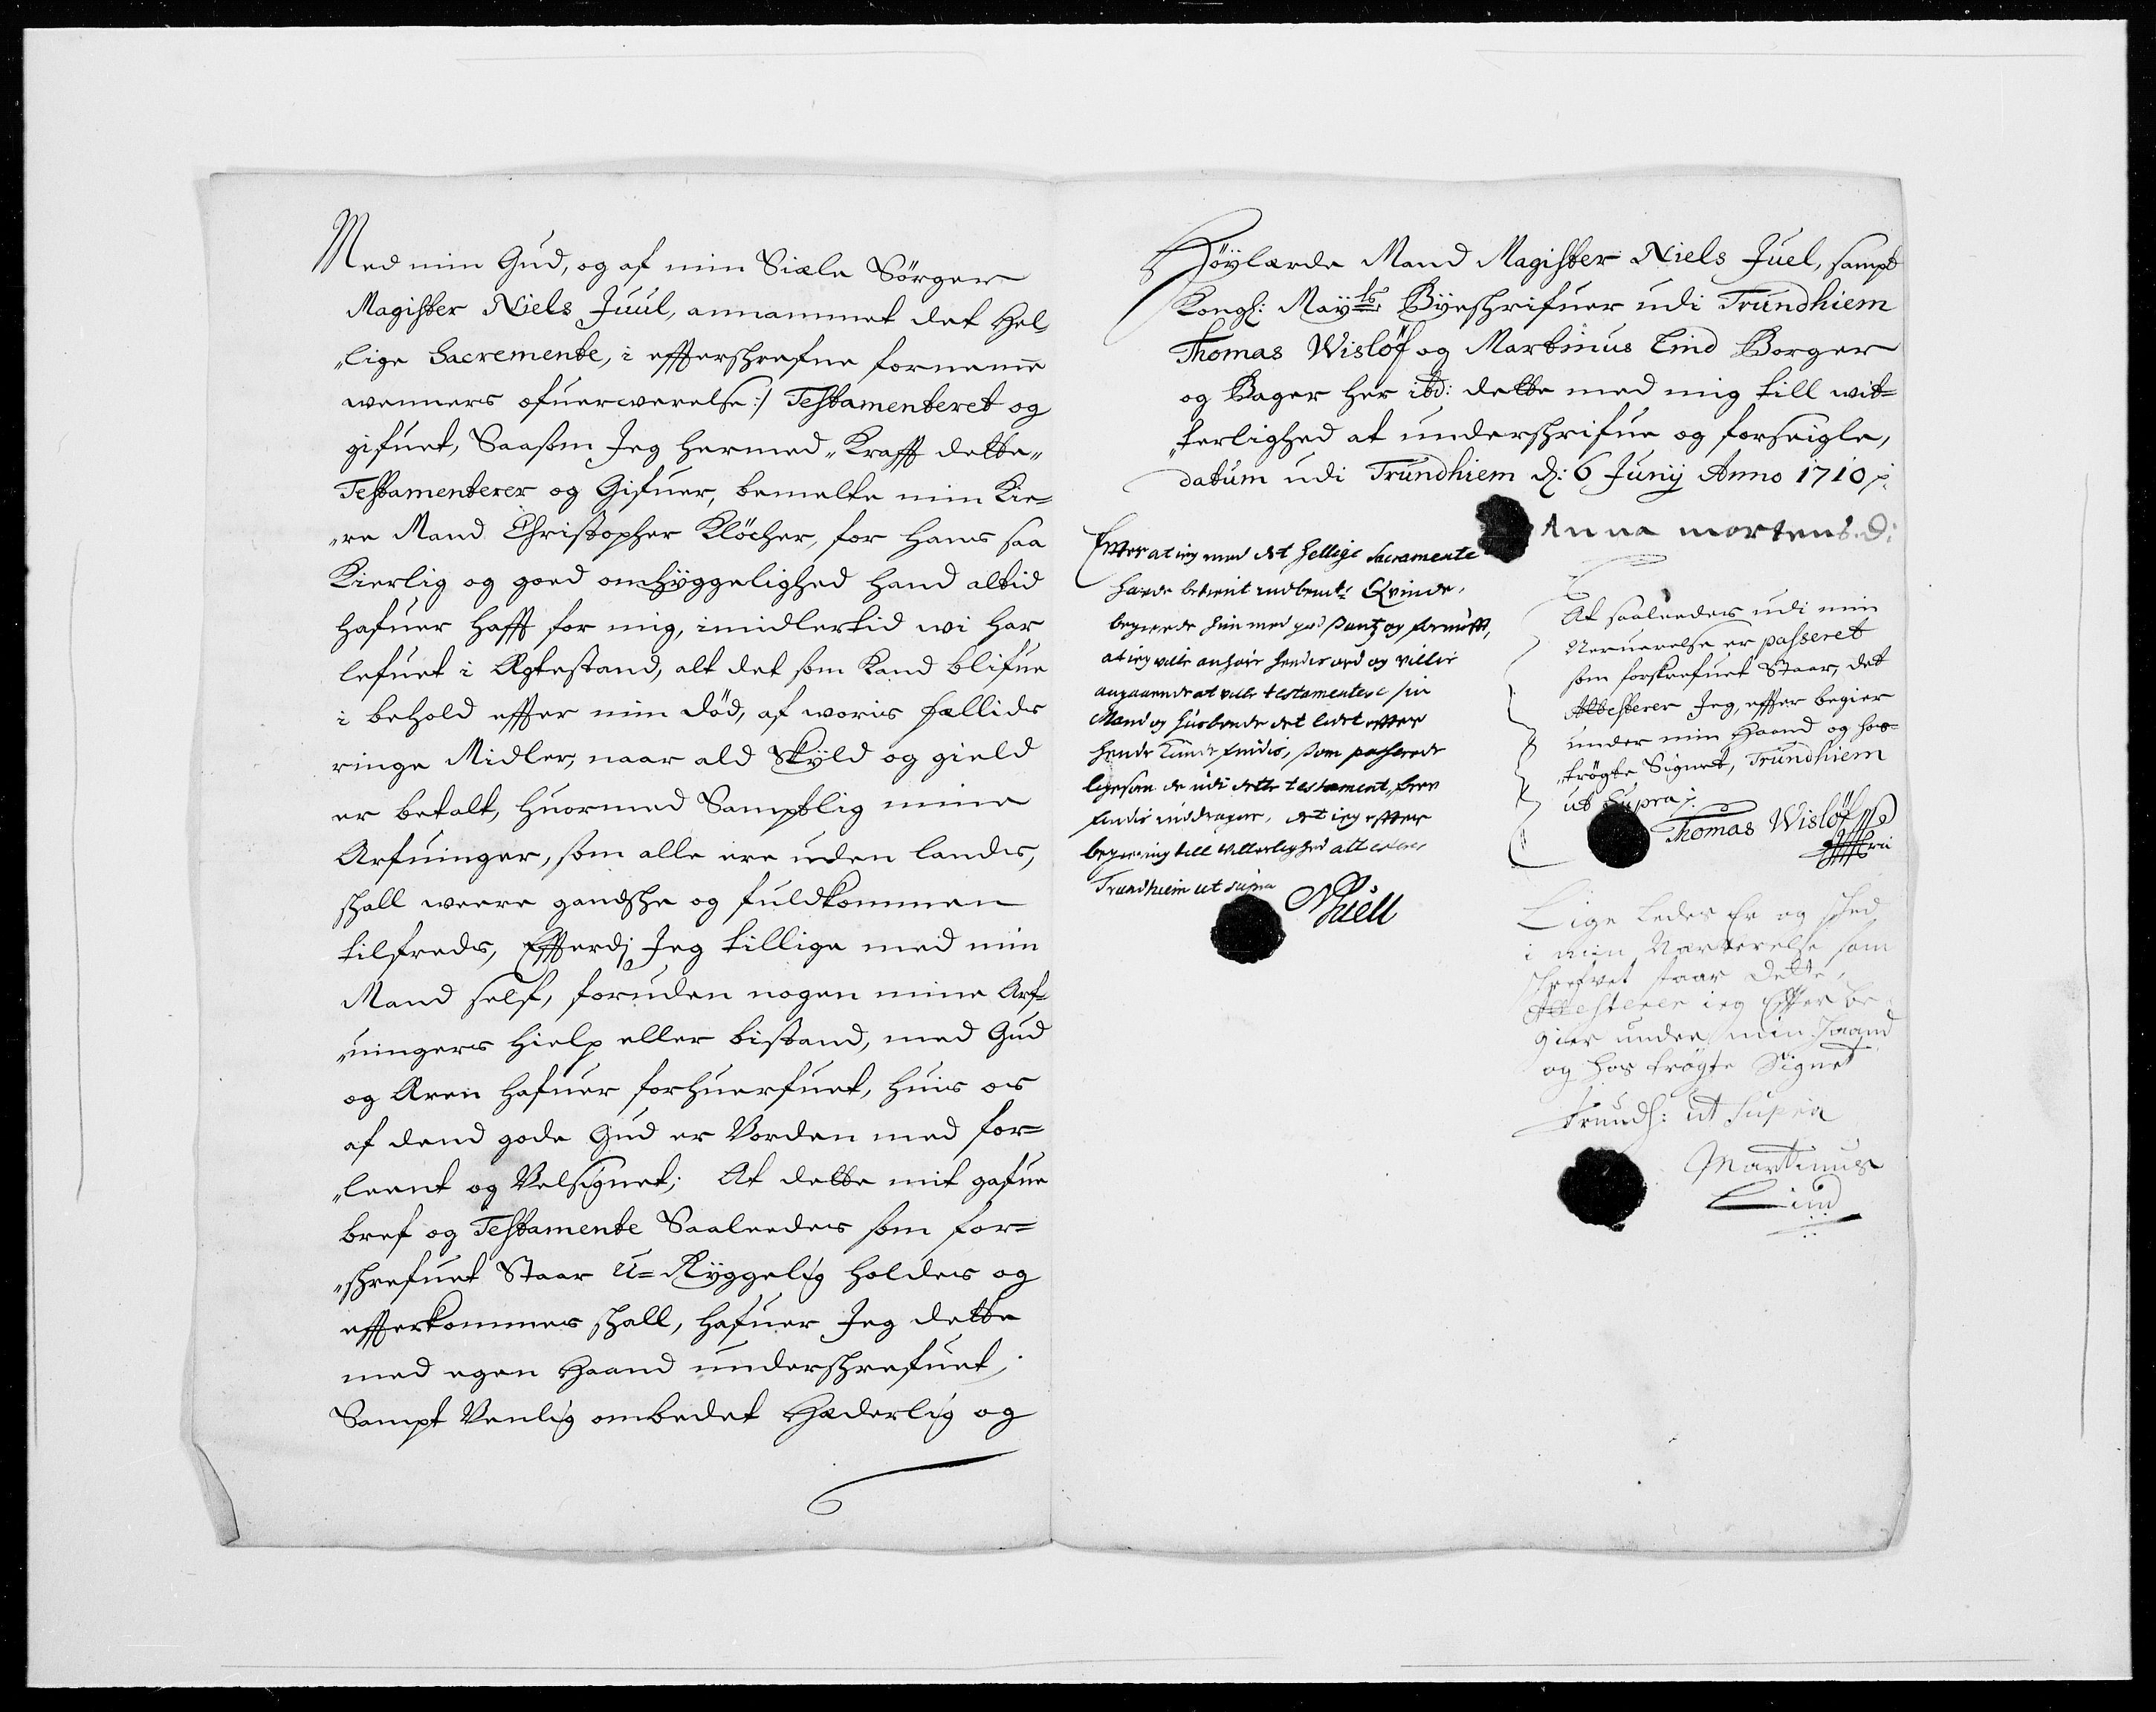 Med min Gud, og af min Siæle Sörger
Magister Niels Juul, annammet det Hel
„lige Sacremente, i effterschrefne fornemme
wenners ofuerwerelse :/ Testamenteret og
gifuet, Saasom Jeg hermed „Krafft dette„
Testamenterer og Gifuer, bemelte min Kie=
„re Mand Christopher Klöcher, for hans saa
Kierlig og goed omhÿggelighed hand altid
hafuer hafft for mig, imidlertid wi har
lefuet i Ægtestand, alt det som kand blifue
i behold effter min död, af woris fællids
ringe Midler, naar ald Skÿld og gield
er betalt, huormed Samptlig mine
Arfuinger, som alle ere uden lands,
schall weere gandsche og fuldkommen
tilfreds, Effterdj Jeg tillige med min
Mand self, foruden nogen mine Arf=
„uingers hielp eller bistand, med Gud
og Æren hafuer forhuerfuet, huis os
af dend gode Gud er Vorden med for=
„leent og Velsignet; At dette mit gafue
bref og Testamente Saaleedes som for=
„schrefuet Staar U=Rÿggelig holdes og
effterkommes schall, hafuer Jeg dette
med egen Haand underschrefuet,
Sampt Venlig ombedet Hæderlig og
Höÿlærde Mand Magister Niels Juel, sampt
Kongl: Maÿts: Bÿeschrifuer udi Trundhiem
Thomas Wislöf og Martinus Lind Borger
og Bager her ibd: dette med mig till wit=
„terlighed at underschrifue og forseigle,
datum udi Trundhiem d: 6 Junij Anno 1710 /.
Anna mortens.d:
Efftter at ieg med det hellige Sacramente
hafde betient Qvinde,
begierede hun med god Santz og fornufft,
at ieg ville anhöre hendes ord og villie
angaaende at ville testamentere sin
Mand og husbonde det lidet effter
hende kunde findis, som passerede
ligesom de udi dette testament,
findis inddragne, det ieg effter
begiering till Vitterlighed attesterer
Trundhiem ut supra
NJuell
At saaleedes udi min
Neruerelse er passeret
som forskrefuet Staar, det
Attesterer Jeg, effter begier
under min Haand og hos=
„trögte Signet, Trundhiem
ut Supra /.
Thomas Wislöf
Lige ledes Er og scheed
i min Nærværelse som
schrefvet staar dette,
Attesterer ieg Effter be
gier under min Haand
og hos trögte Signet
Trundh: ut Supra
Martinus
Lind